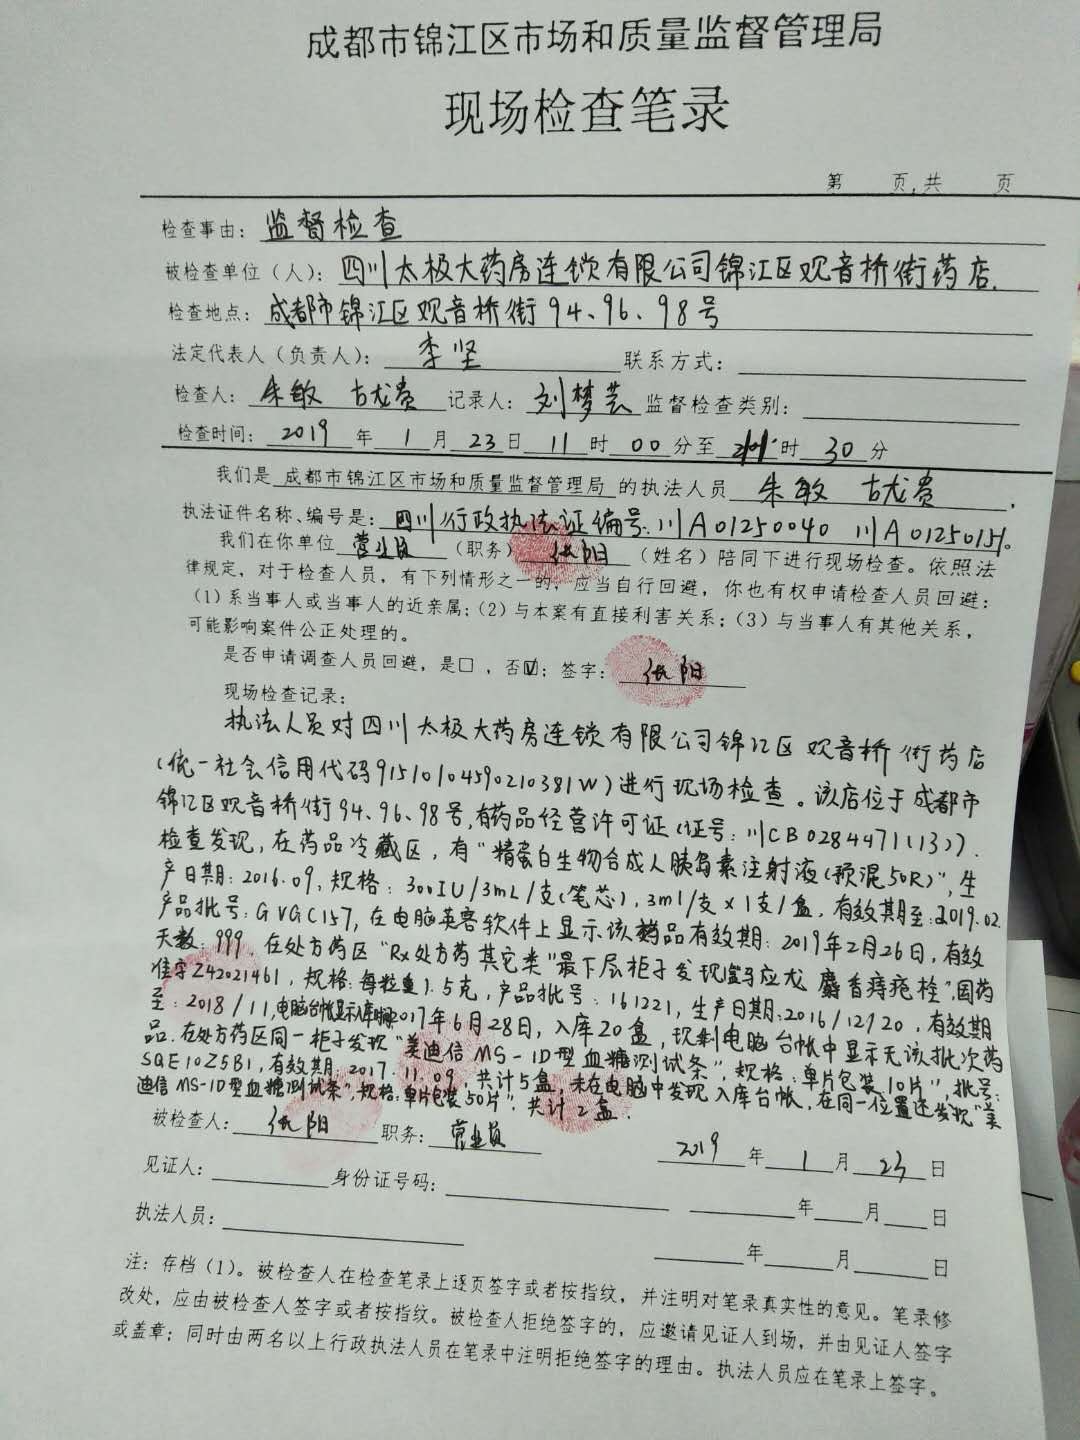 成都市锦江区市场和质量监督管理局
现场检查笔录
第 页,共 页
检查事由: 监督检查
被检查单位(人): 四川太极大药房连锁有限公司锦江区观音桥街药店.
检查地点: 成都市锦江区观音桥街94、96、98号
法定代表人(负责人): 李坚 联系方式:
检查人: 朱敏 古龙贵 记录人: 刘梦芸 监督检查类别:
检查时间: 2019 年 1 月 23 日 11 时 00 分至 时 30 分
我们是 成都市锦江区市场和质量监督管理局 的执法人员 朱敏 古龙贵 .
执法证件名称、编号是: 四川行政执法证编号:川A01250040 川A01250151。
我们在你单位 营业员 (职务) 阳 (姓名)陪同下进行现场检查。依照法
律规定，对于检查人员，有下列情形之一的，应当自行回避，你也有权申请检查人员回避：
(1)系当事人或当事人的近亲属；(2)与本案有直接利害关系；(3)与当事人有其他关系，
可能影响案件公正处理的。
是否申请调查人员回避，是□，否☑；签字: 阳
现场检查记录:
执法人员对四川太极大药房连锁有限公司锦江区观音桥街药店
(统一社会信用代码91510104590210381W)进行现场检查。该店位于成都市
锦江区观音桥街94、96、98号,有药品经营许可证(证号:川CB0284471(13)).
检查发现,在药品冷藏区,有"精蛋白生物合成人胰岛素注射液(预混50R)",生
产日期:2016.09,规格:300IU/3mL/支(笔芯),3ml/支×1支/盒,有效期至:2019.02.
产品批号:GVGC157,在电脑英客软件上显示该药品有效期:2019年2月26日,有效
天数:999.在处方药区"Rx处方药其它类"最下层柜子发现马应龙麝香痔疮栓",国药
准字Z42021461,规格:每粒重1.5克,产品批号:161221,生产日期:2016/12/20,有效期
至:2018/11,电脑台帐显示2017年6月28日,入库20盒,现剩电脑台帐中显示无该批次药
品.在处方药区同一柜子发现"美迪信MS-1D型血糖测试条",规格:单片包装10片",批号:
SQE10Z5B1,有效期:2017.11.09,共计5盒,未在电脑中发现入库台帐,在同一位置还发现"美
迪信MS-1D型血糖测试条",规格:单片包装50片".共计2盒.
被检查人: 阳 职务: 营业员 2019 年 1 月 23 日
见证人: 身份证号码: 年 月 日
执法人员: 年 月 日
注：存档(1)。被检查人在检查笔录上逐页签字或者按指纹，并注明对笔录真实性的意见。笔录修
改处，应由被检查人签字或者按指纹。被检查人拒绝签字的，应邀请见证人到场，并由见证人签字
或盖章；同时由两名以上行政执法人员在笔录中注明拒绝签字的理由。执法人员应在笔录上签字。